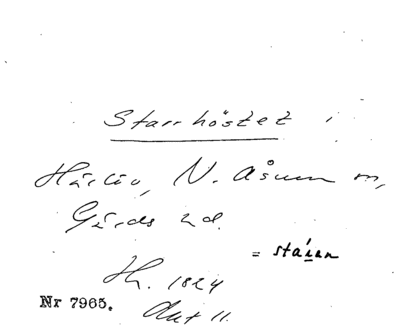 Starrhöstet i
Härlöv, N. Åsum m,
Gärds hd.
= staren
H. 1824
Akt 11.
Nr 7965.